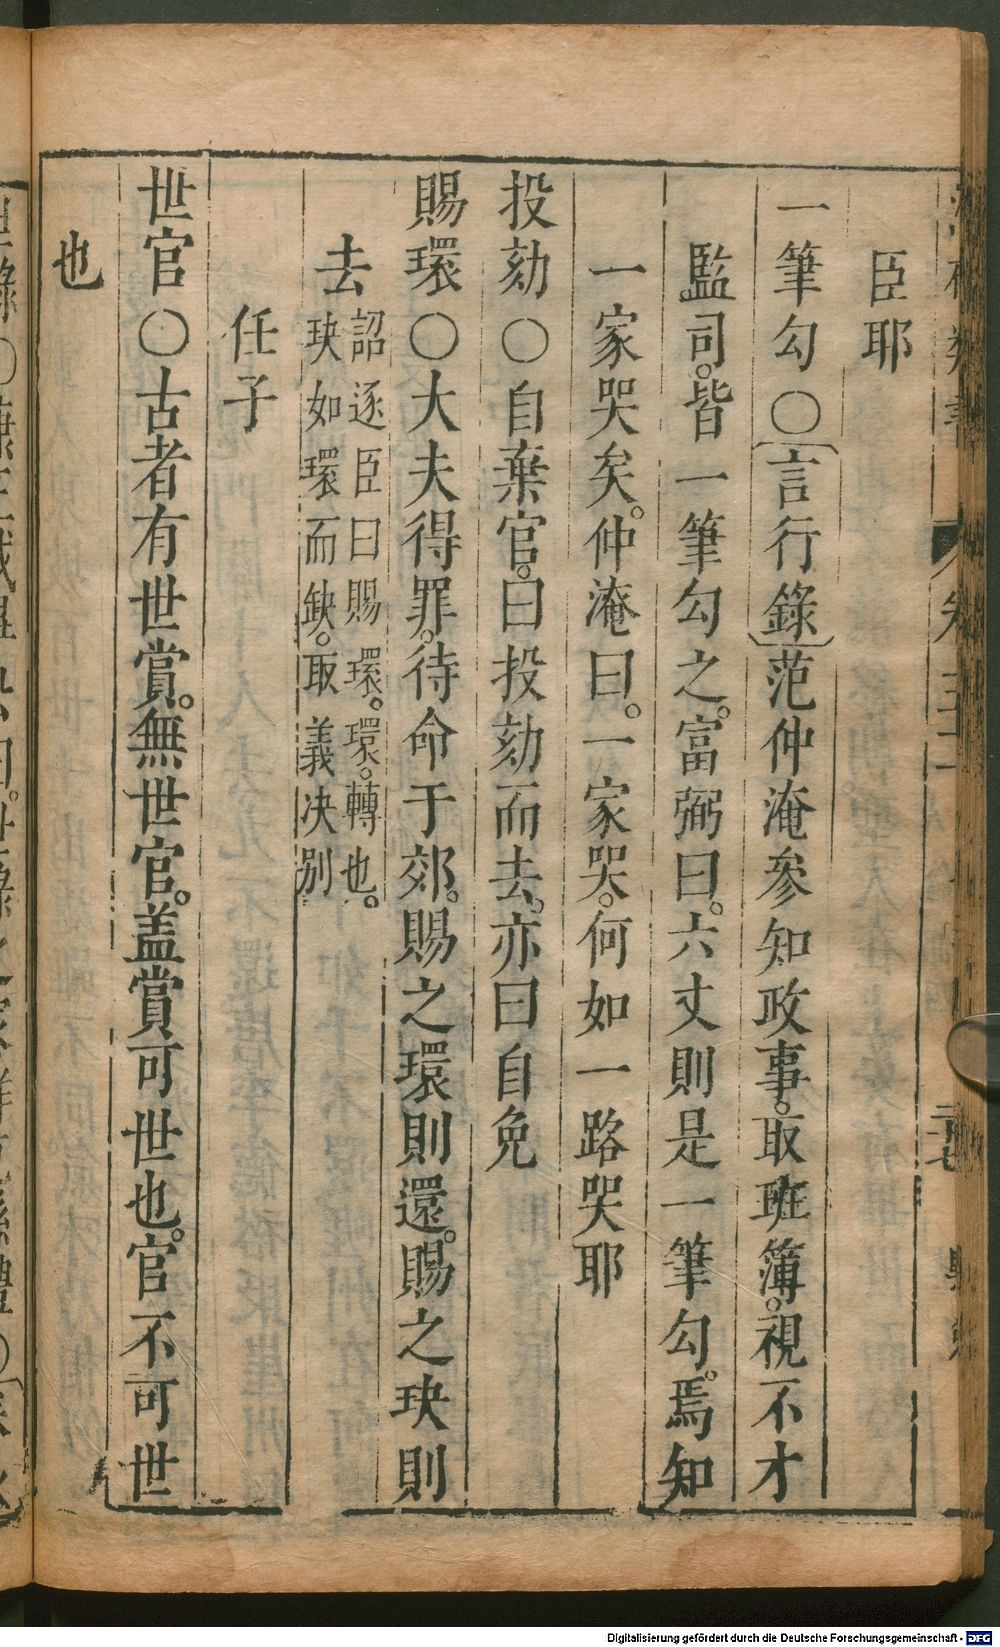 臣耶
一筆勾○〔言行錄〕范仲淹參知政事。取班簿。視不才
監司。皆一筆勾之。富弼曰。六丈則是一筆勾。焉知
一家哭矣。仲淹曰。一家哭。何如一路哭耶
投劾○自棄官。曰投劾而去。亦曰自免
賜環○大夫得罪。待命于郊。賜之環則還。賜之玦則
去 詔逐臣曰賜環。環。轉也。
玦如環而缺。取義决別
任子
世官○古者有世賞。無世官。盖賞可世也。官不可世
也
Digitalisierung gefördert durch die Deutsche Forschungsgemeinschaft - DFG